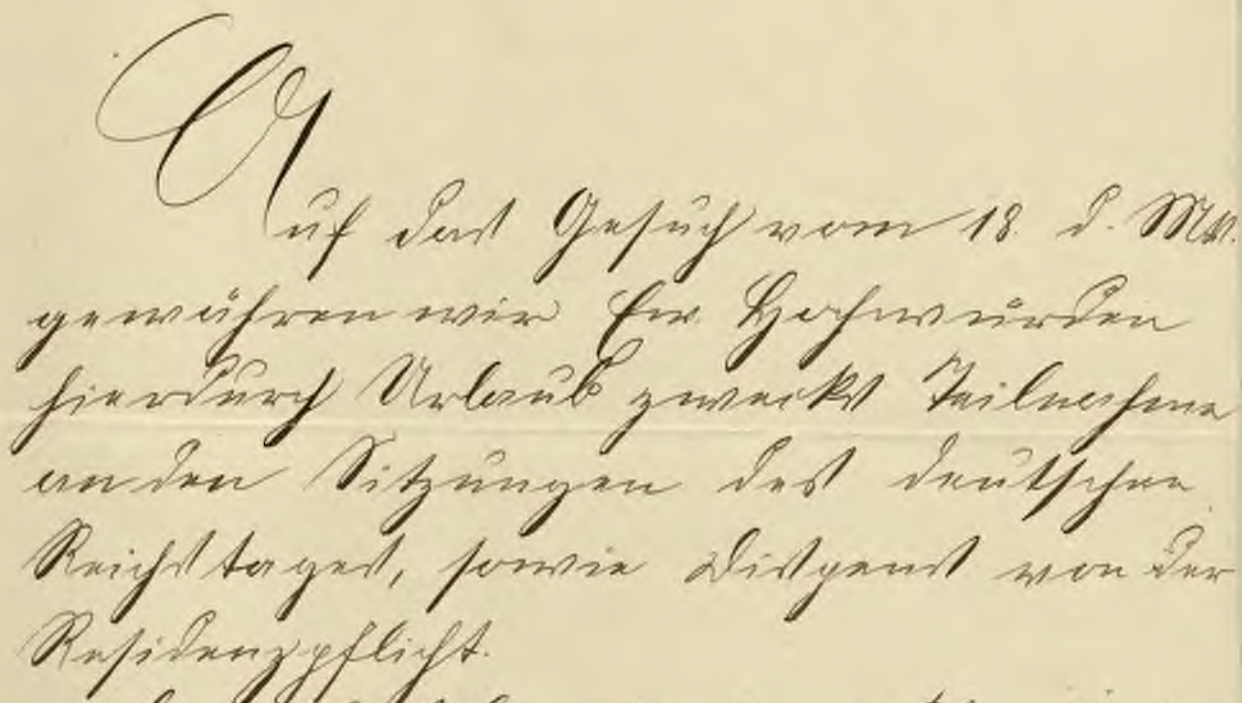 Auf das Gesuch vom 18. d. Mts.
gewähren wir Ew. Hochwürden
hierdurch Urlaub zwecks Teilnahme
an den Sitzungen des deutschen
Reichstages, sowie Dispens von der
Residenzpflicht.